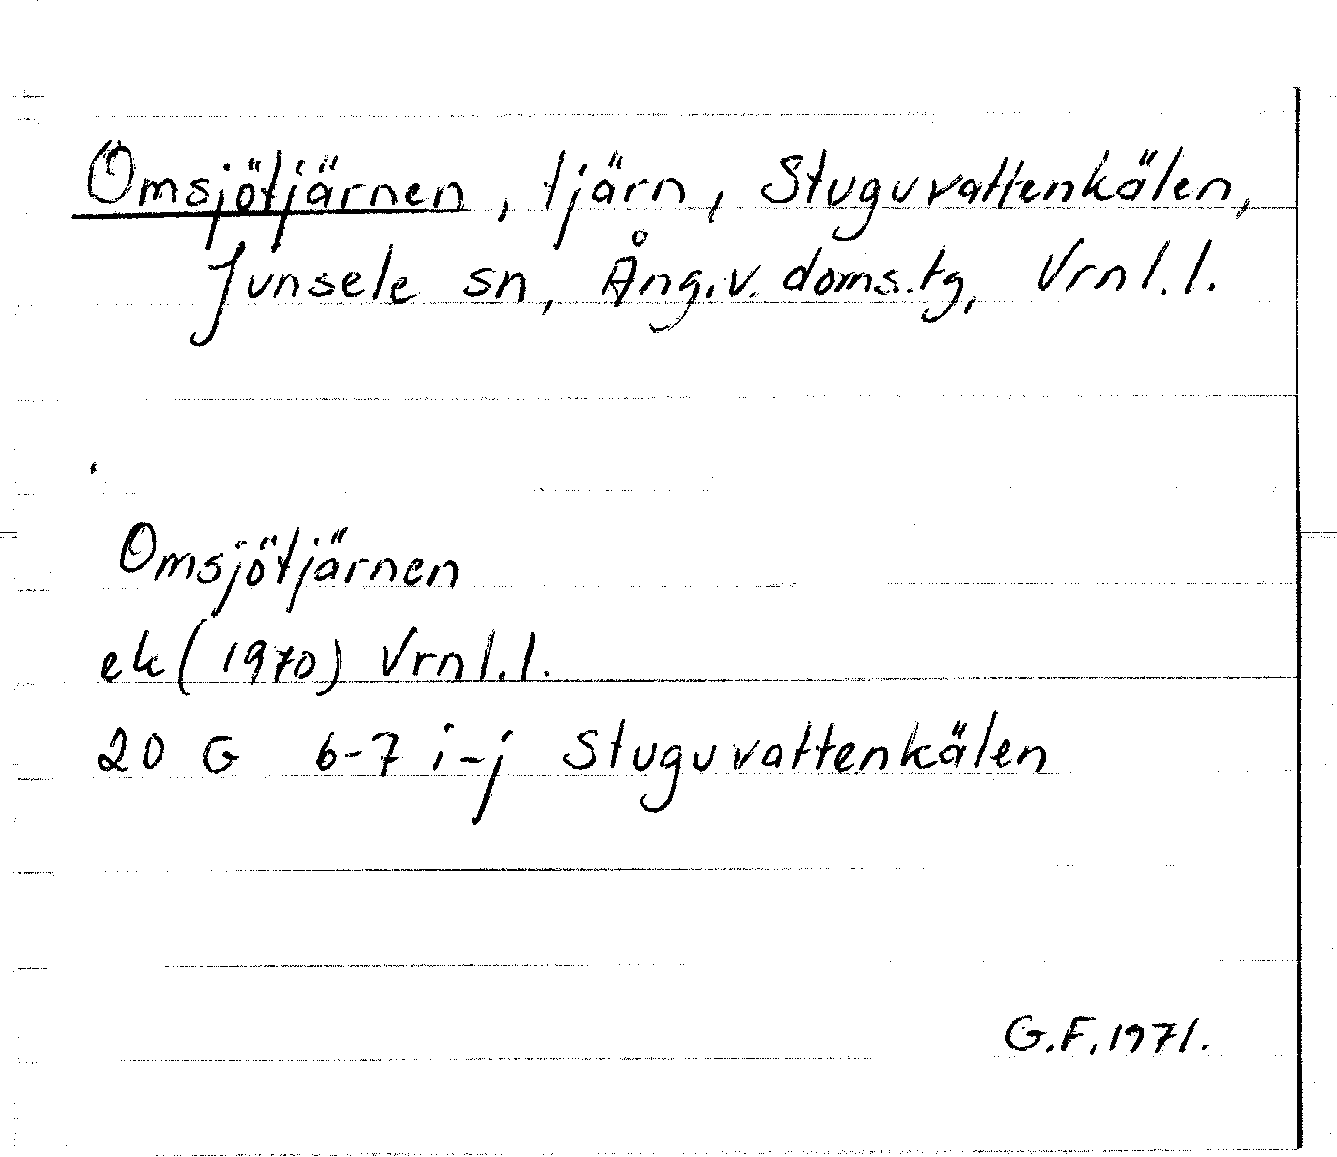 Omsjötjärnen, tjärn, Stuguvattenkälen,
Junsele sn, Ång.v. doms.tg, Vrnl.l.
Omsjötjärnen
ek (1970) Vrnl.l.
20 G 6-7 i-j Stuguvattenkälen
G.F. 1971.